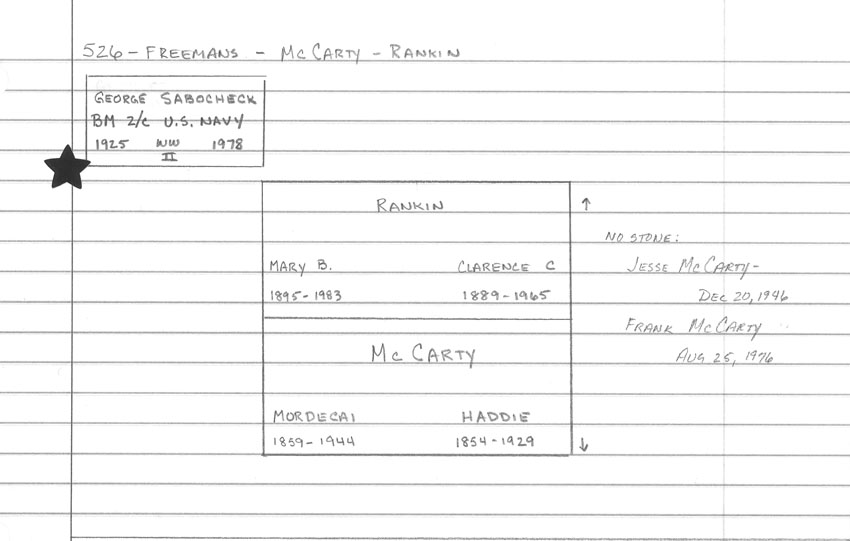 526 - FREEMANS - McCARTY - RANKIN
GEORGE SABOCHECK
BM 2/c U.S. NAVY
1925 WW 1978
II
RANKIN
MARY B. CLARENCE C
1895 - 1983 1889 - 1965
McCARTY
MORDECAI HADDIE
1859 - 1944 1854 - 1929
↑
NO STONE:
JESSE McCARTY -
DEC 20, 1946
FRANK McCARTY
AUG 25, 1976
↓